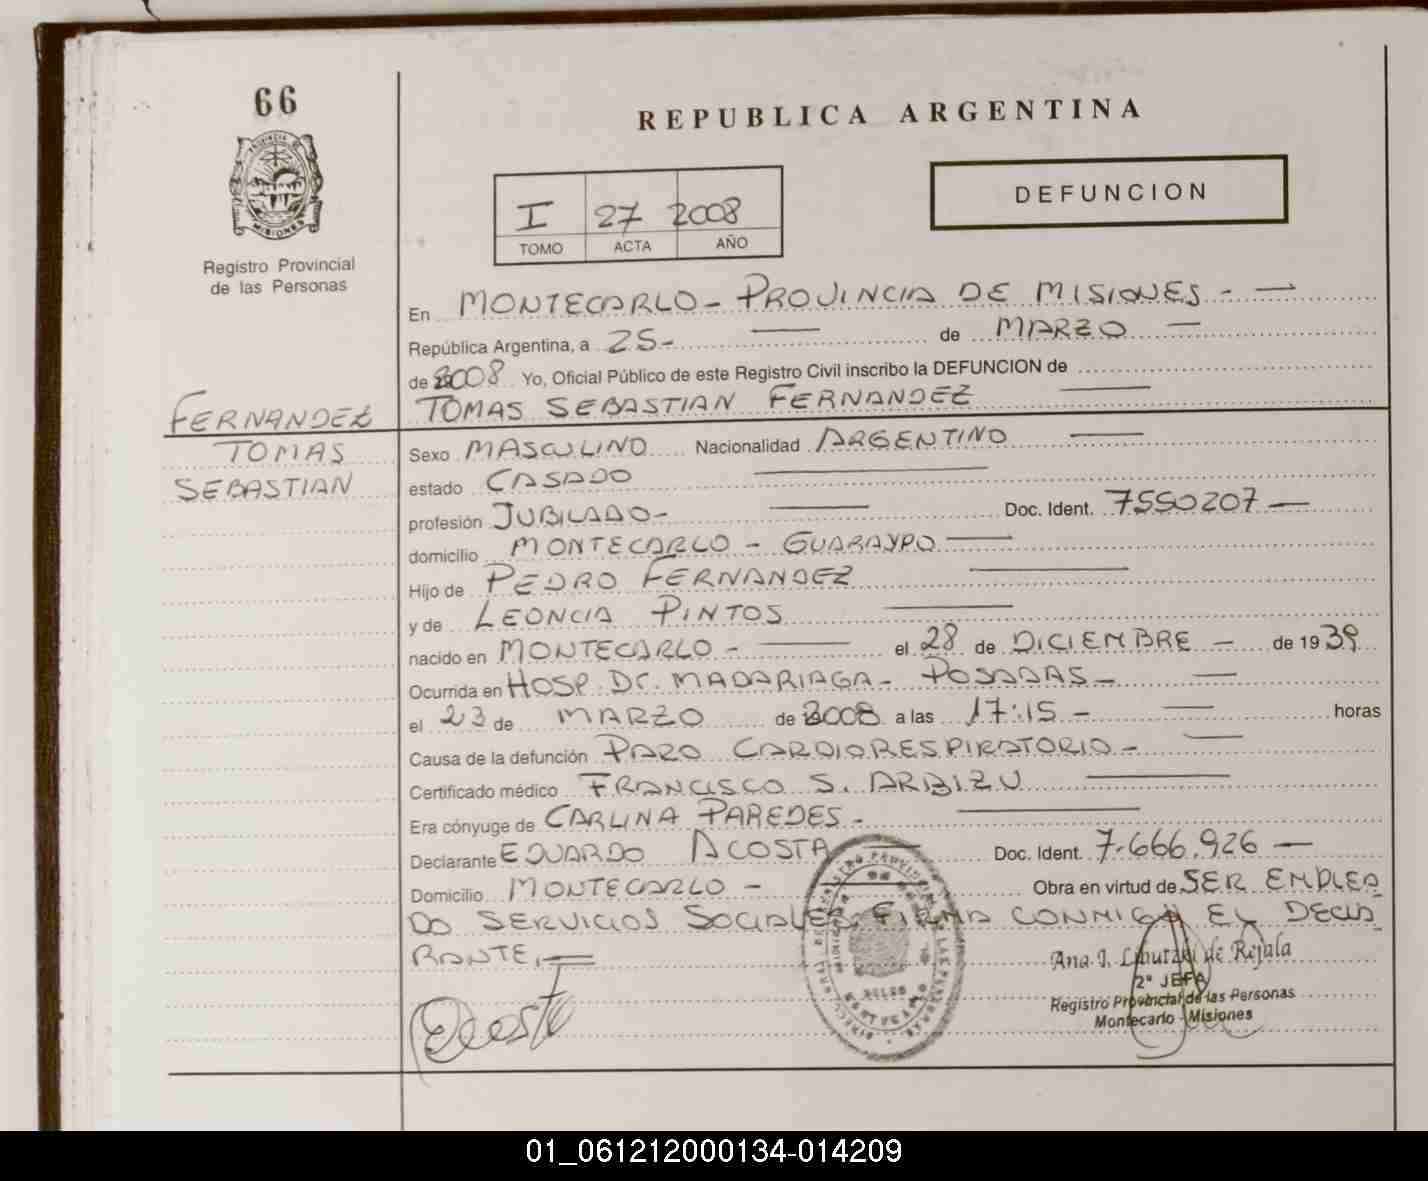 66
REPUBLICA ARGENTINA
PROVINCIA DE
MISIONES
Registro Provincial
de las Personas
DEFUNCION
I 27 2008
TOMO ACTA AÑO
En MONTECARLO - PROVINCIA DE MISIONES - —
República Argentina, a 25 - — de MARZO —
de 2008 Yo, Oficial Público de este Registro Civil inscribo la DEFUNCION de
FERNANDEZ TOMAS SEBASTIAN FERNANDEZ —
TOMAS Sexo MASCULINO Nacionalidad ARGENTINO —
SEBASTIAN estado CASADO —
profesión JUBILADO - — Doc. Ident. 7550207 —
domicilio MONTECARLO - GUARAYPO —
Hijo de PEDRO FERNANDEZ —
y de LEONCIA PINTOS —
nacido en MONTECARLO - — el 28 de DICIEMBRE — de 1939
Ocurrida en HOSP. Dr. MADARIAGA - POSADAS - —
el 23 de MARZO de 2008 a las 17:15 - — horas
Causa de la defunción PARO CARDIORESPIRATORIO - —
Certificado médico FRANCISCO S. ARBIZU —
Era cónyuge de CARLINA PAREDES - —
Declarante EDUARDO ACOSTA — Doc. Ident. 7.666.926 —
Domicilio MONTECARLO - — Obra en virtud de SER EMPLEA
DO SERVICIOS SOCIALES. FIRMA CONMIGO EL DECLA
RANTE. —
Ana I. de Rejala
2º JEFA
Registro Provincial de las Personas
Montecarlo - Misiones
01_061212000134-014209